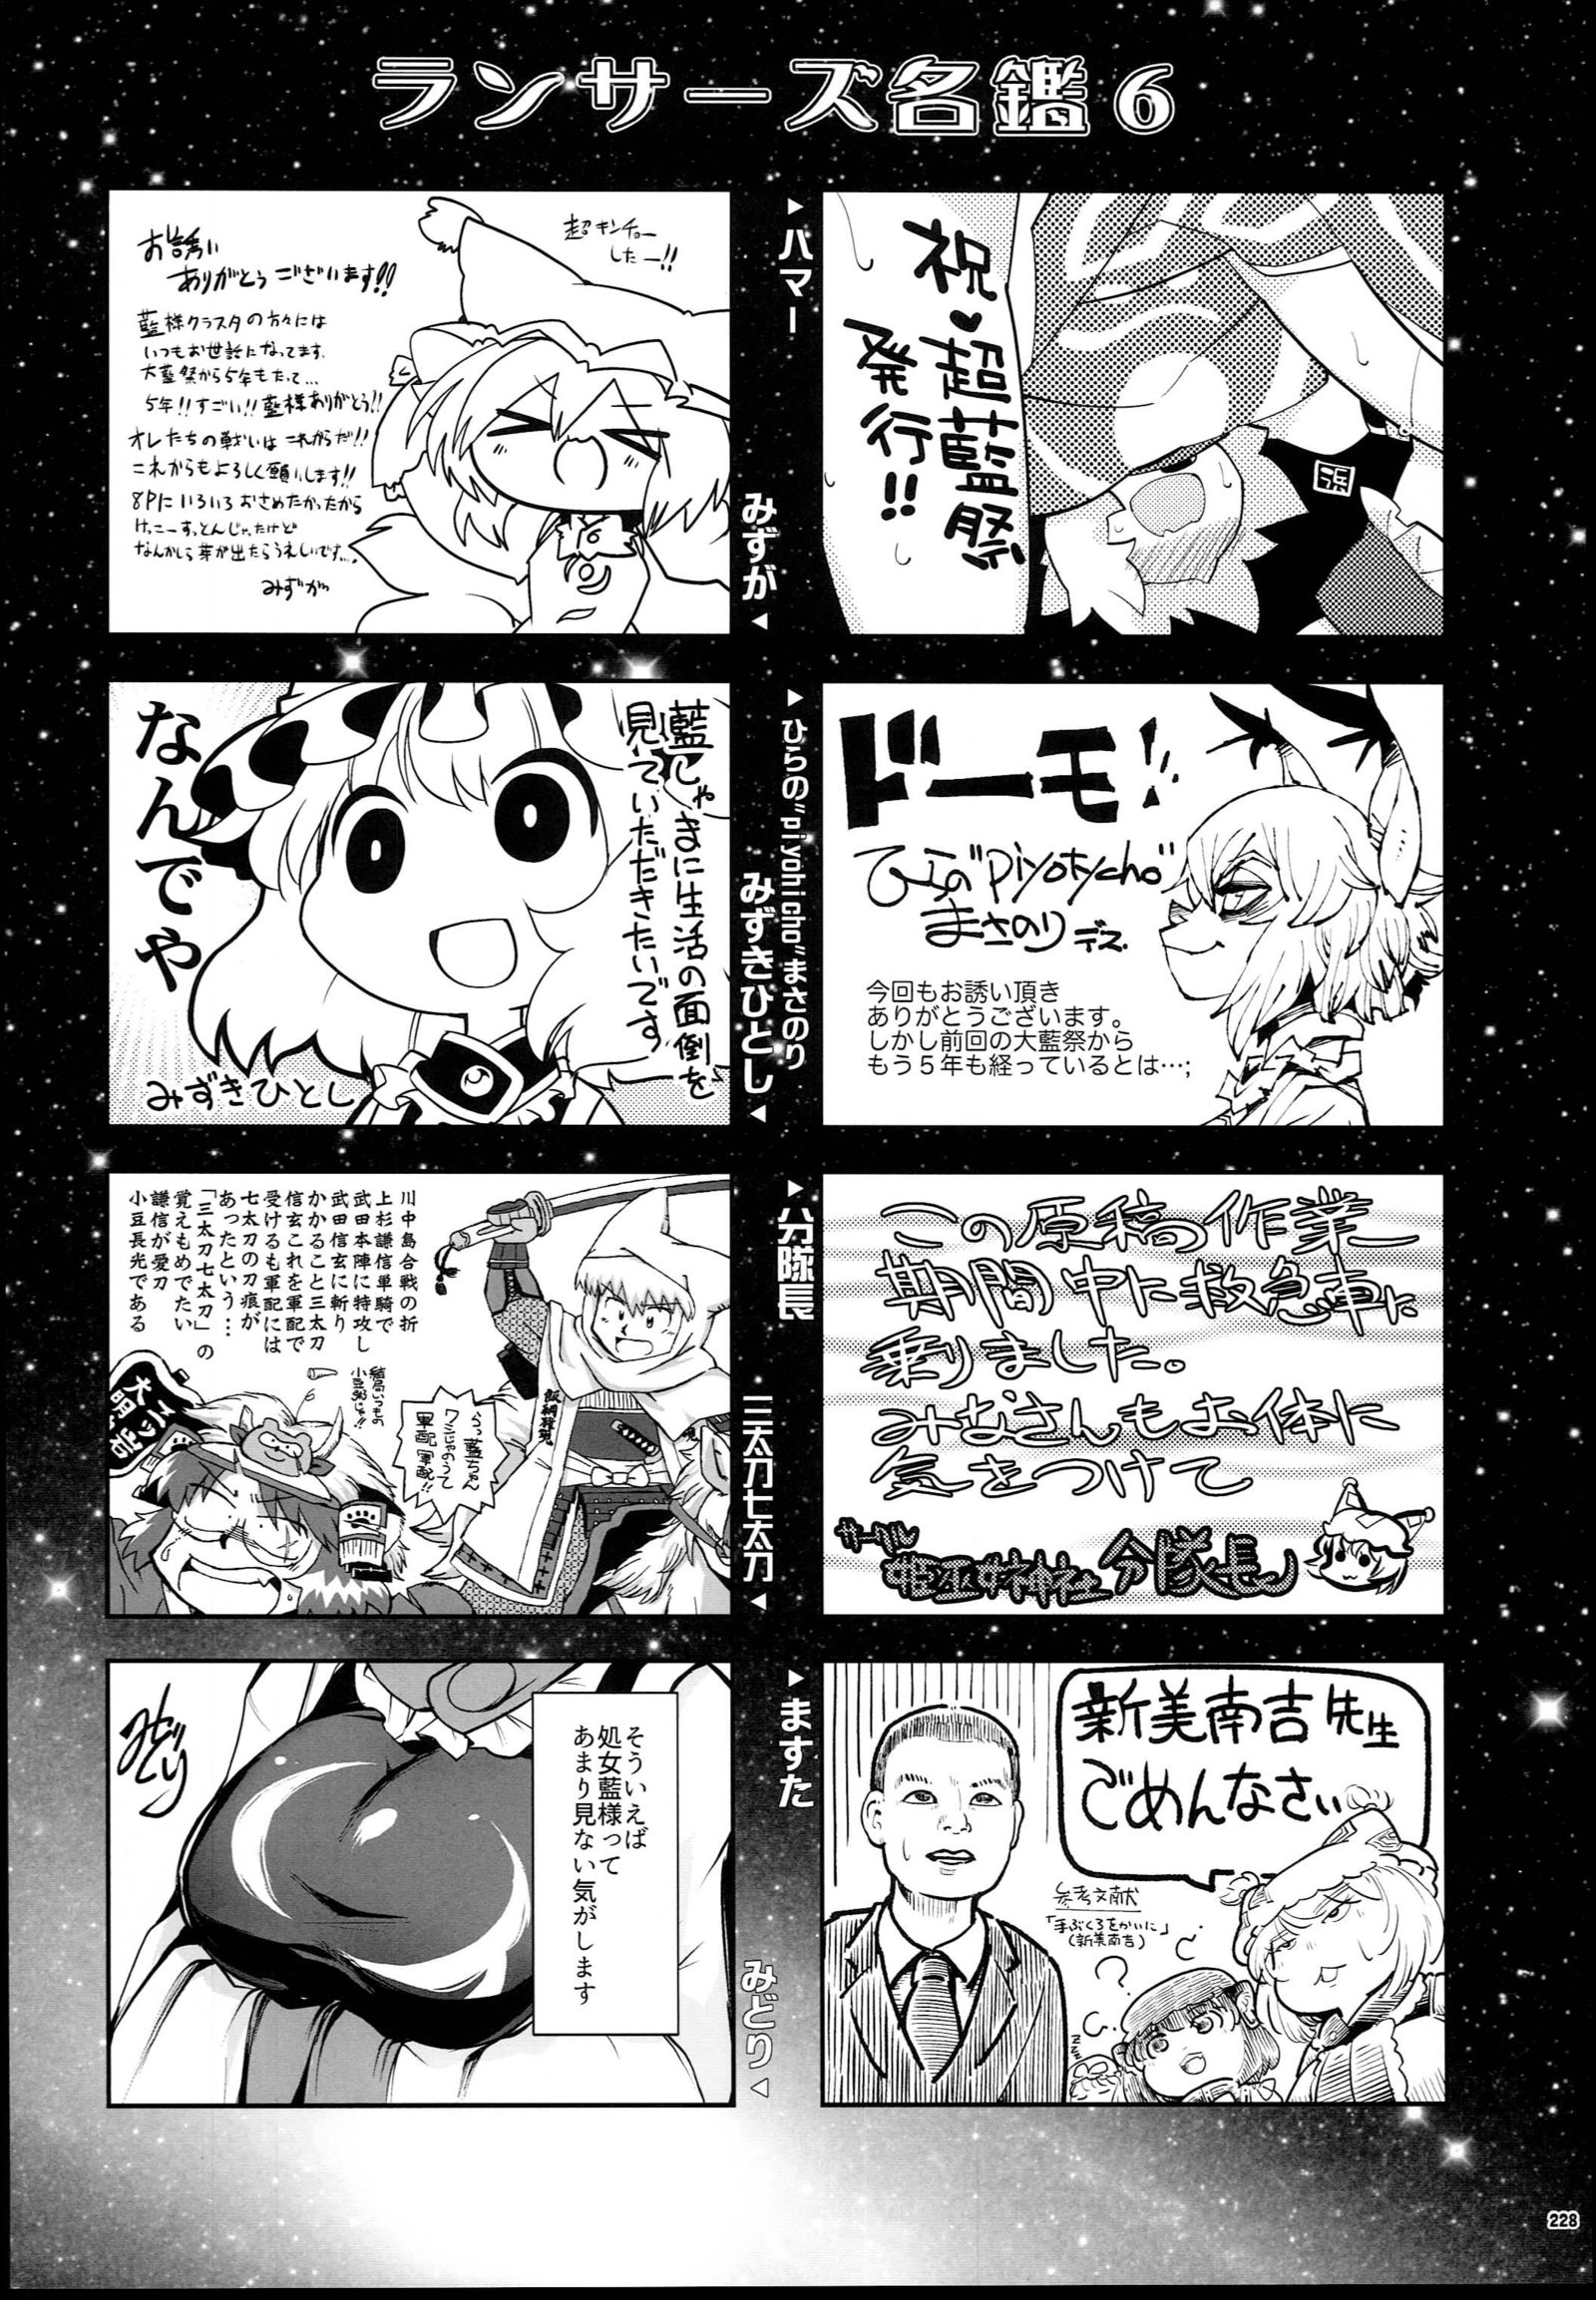 ランサーズ名鑑 6
▶ハマー
祝♥超藍祭
発行!!
浜
みずが◀
超キンチョー
したー!!
お誘い
ありがとうございます!!
藍様クラスタの方々には
いつもお世話になってます。
大藍祭から5年もたって…
5年!!すごい!!藍様ありがとう!!
オレたちの戦いはこれからだ!!
これからもよろしく願いします!!
8Pにいろいろおさめたかったから
けっこーすっとんじゃたけど
なんかしら芽が出たらうれしいです…。
みずが
▶ひらの"piyohicho"まさのり
ドーモ!!
ひらの"piyohicho"
まさのりデス
今回もお誘い頂き
ありがとうございます。
しかし前回の大藍祭から
もう5年も経っているとは…;
みずきひとし◀
藍しゃまに生活の面倒を
見ていただきたいです
なんでや
みずきひとし
▶分隊長
この原稿作業
期間中に救急車に
乗りました。
みなさんもお体に
気をつけて
サークル
分隊長
三太刀七太刀◀
川中島合戦の折
上杉謙信単騎で
武田本陣に特攻し
武田信玄に斬り
かかること三太刀
信玄これを軍配で
受けるも軍配には
七太刀の刀痕が
あったという…
「三太刀七太刀」の
覚えもめでたい
謙信が愛刀
小豆長光である
結局いつもの
小豆粥じゃ!!
飯綱権現
▶ますた
新美南吉先生
ごめんなさい
参考文献
「手ぶくろをかいに」
(新美南吉)
?
zzz
みどり◀
そういえば
処女藍様って
あまり見ない気がします
みどり
228